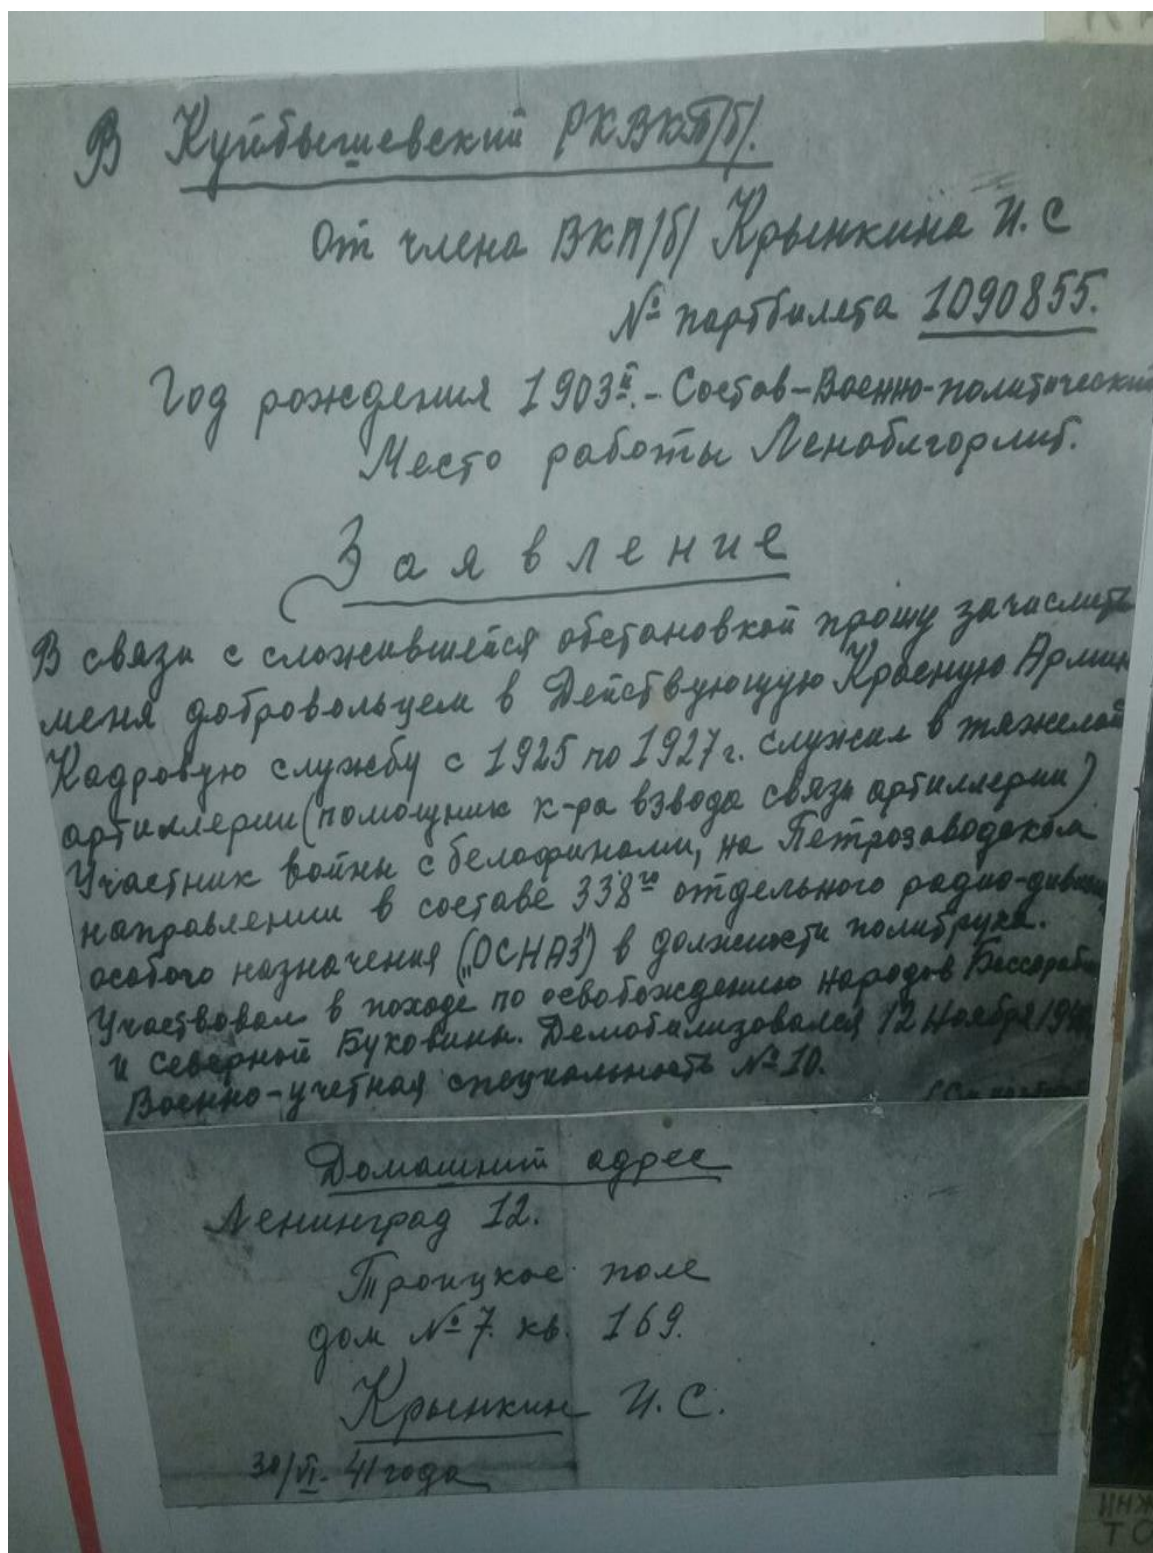 В Куйбышевский РКВКП/б/.
От члена ВКП/б/ Крынкина И.С
№ партбилета 1090855.
Год рождения 1903й.- Состав-Военно-политический
Место работы Леноблгорлит.
Заявление
В связи с сложившейся обстановкой прошу зачислить
меня добровольцем в Действующую Красную Армию
Кадровую службу с 1925 по 1927г. служил в тяжелой
артиллерии (помощник к-ра взвода связи артиллерии)
Участник войны с белофинами, на Петрозаводском
направлении в составе 338го отдельного радио-
особого назначения („ОСНАЗ") в должности политрука.
Участвовал в походе по освобождению народов
и Северной Буковины. Демобилизовался 12 Ноября
Военно-учетная специальность № 10.
Домашний адрес
Ленинград 12.
Троицкое поле
дом № 7. кв. 169.
Крынкин И.С.
30/VI- 41 года